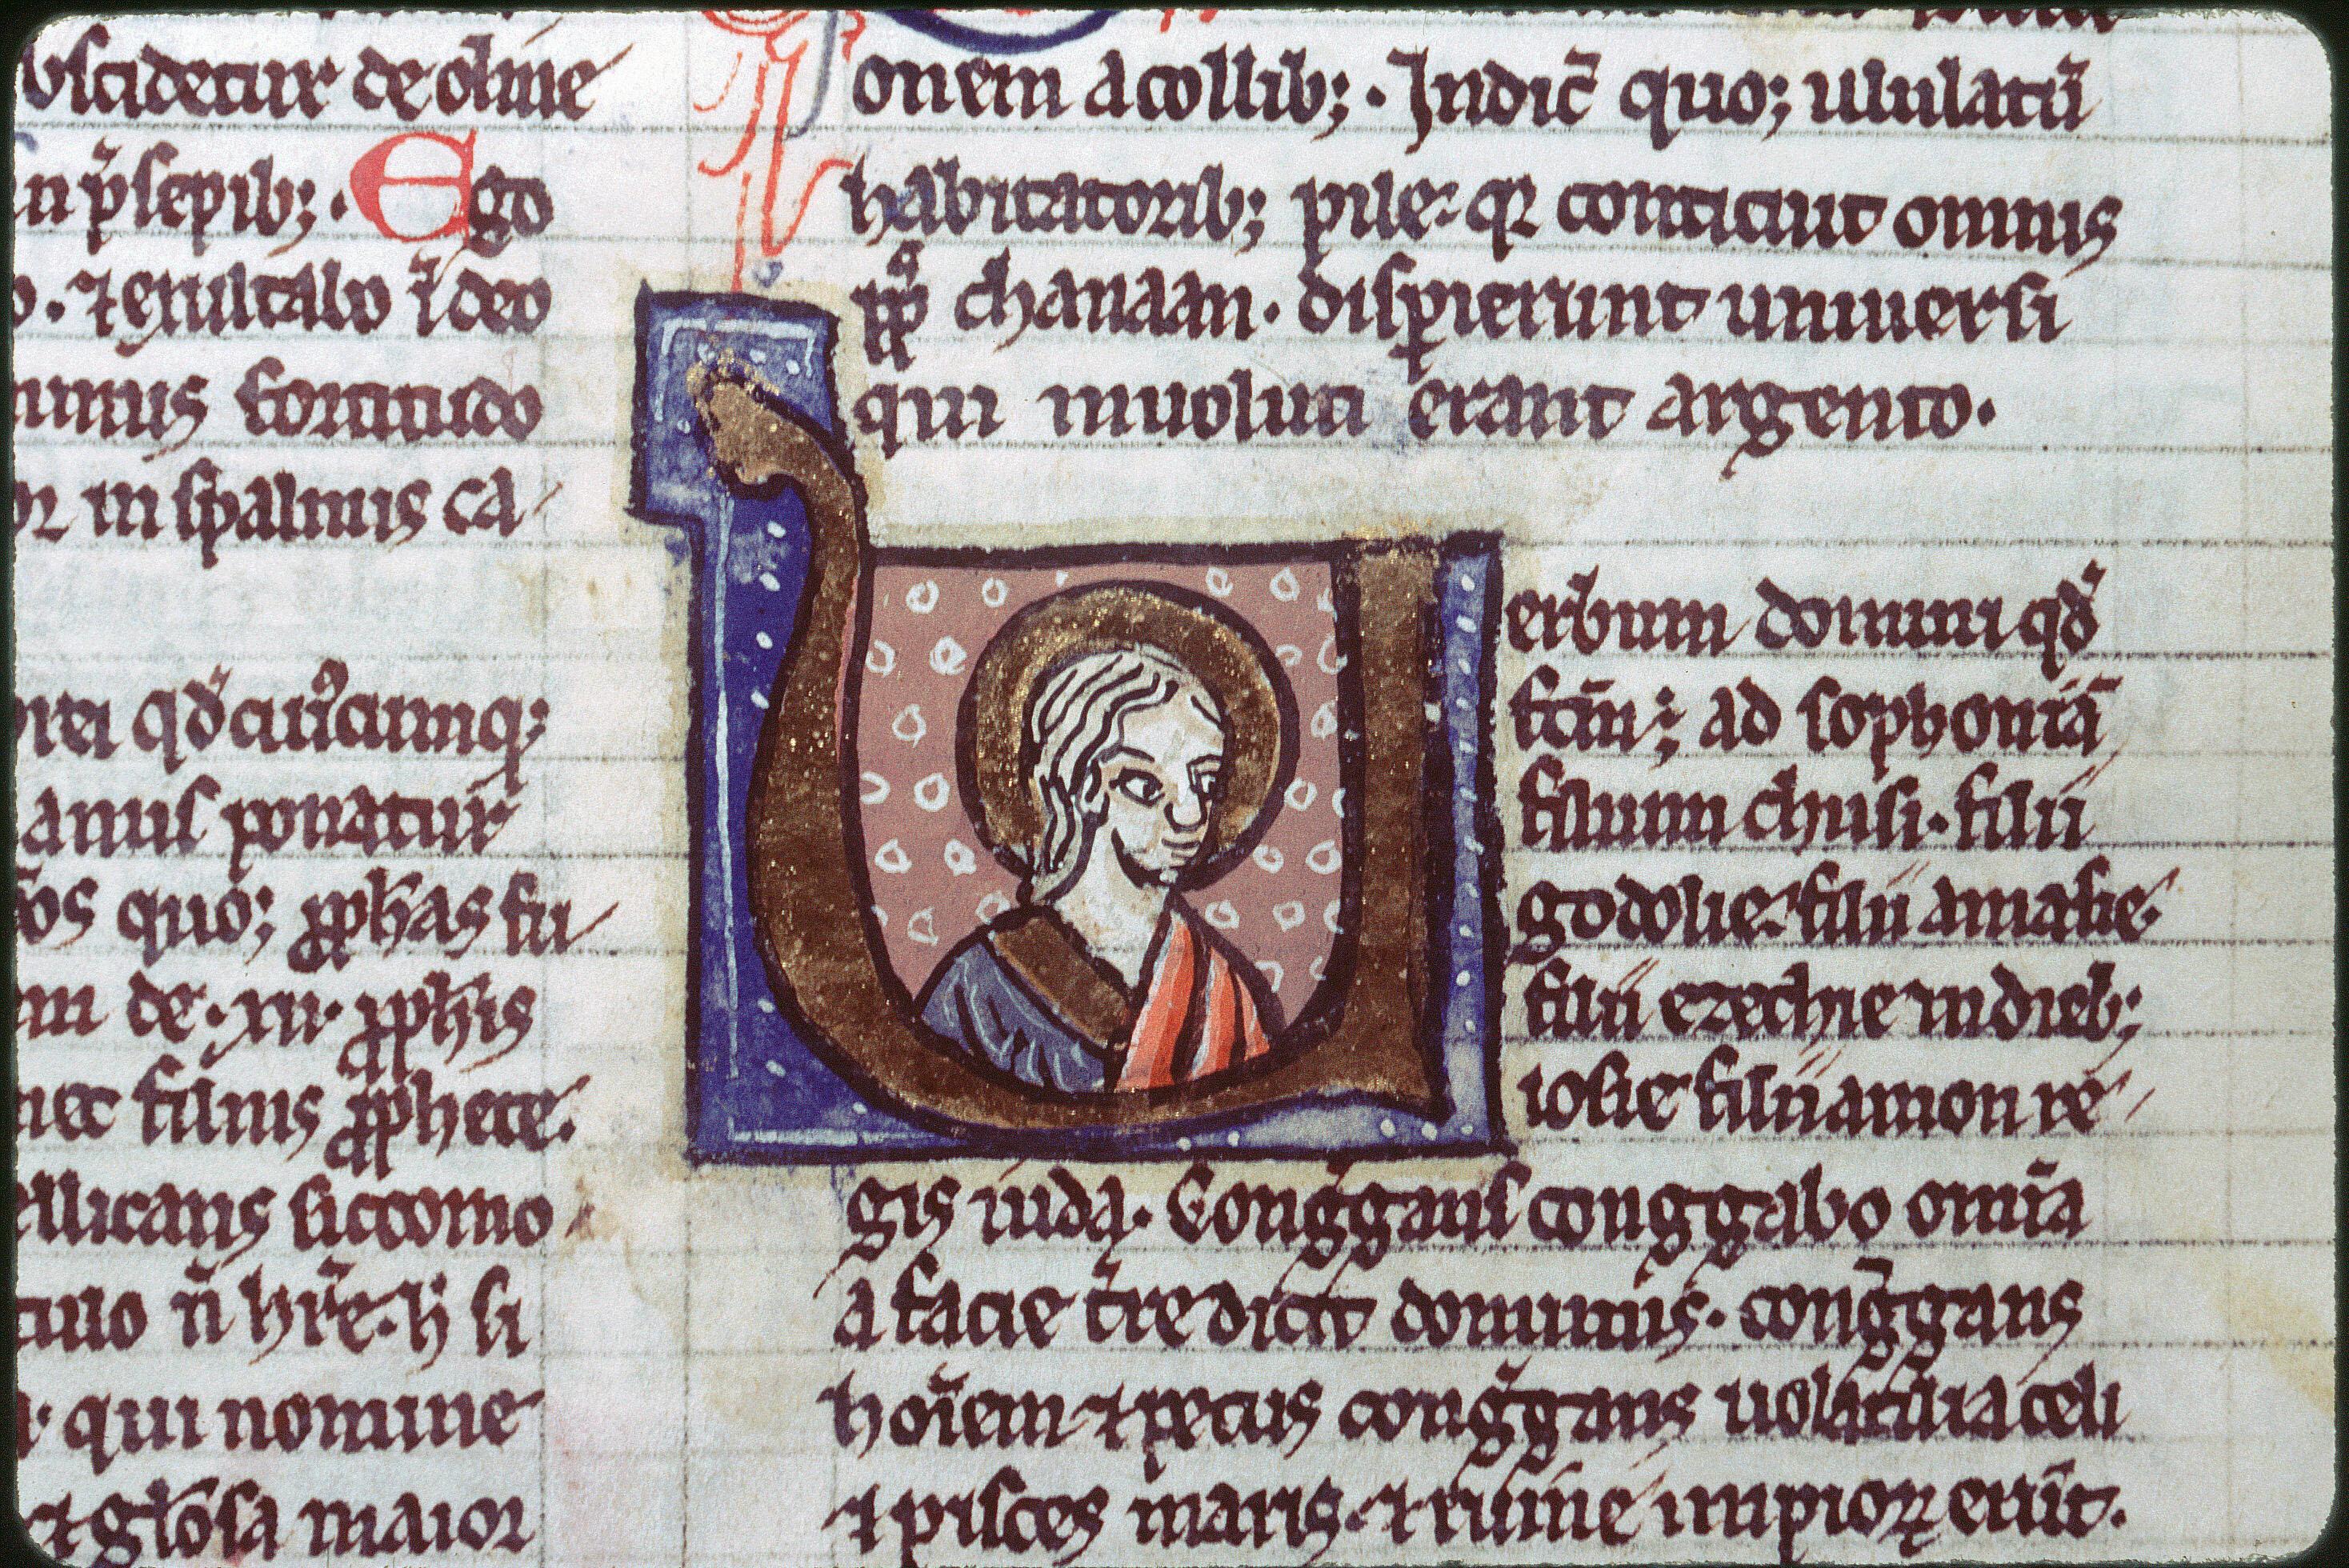 bscidetur de ouile
in p̄sepib; . Ego
o. ⁊ exultabo ī deo
minus fortitudo
or in spalmis ca
rei qđ
auus ponatur
os quo; ꝓph̄as fu
m de .xii. ꝓph̄is
nec filius ꝓphete.
ellicans siccomo
tuo n̄ hr̄e. h̵ si
qui nomine
⁊ glosa maior
onem a collib; . Indic̄ quo; ululatū
habitatorib; pile. qr conticuit omnis
ppł's chanaan. disꝑierunt uniuersi
qui inuoluti erant argento.
erbum domini qđ
fc̄m ÷ ad sophoniā
filium chusi. filii
godolie. filii amasie.
filii ezechie in dieb;
iosie filii amon re
gis iuda. Cong̓gans cong̓gabo om̄ia
a facie t̄re dicit dominus. cong̓gans
hoīem ⁊ pecus cong̓gans uolatilia celi
⁊ pisces maris. ⁊ ruine impioꝝ erūt.